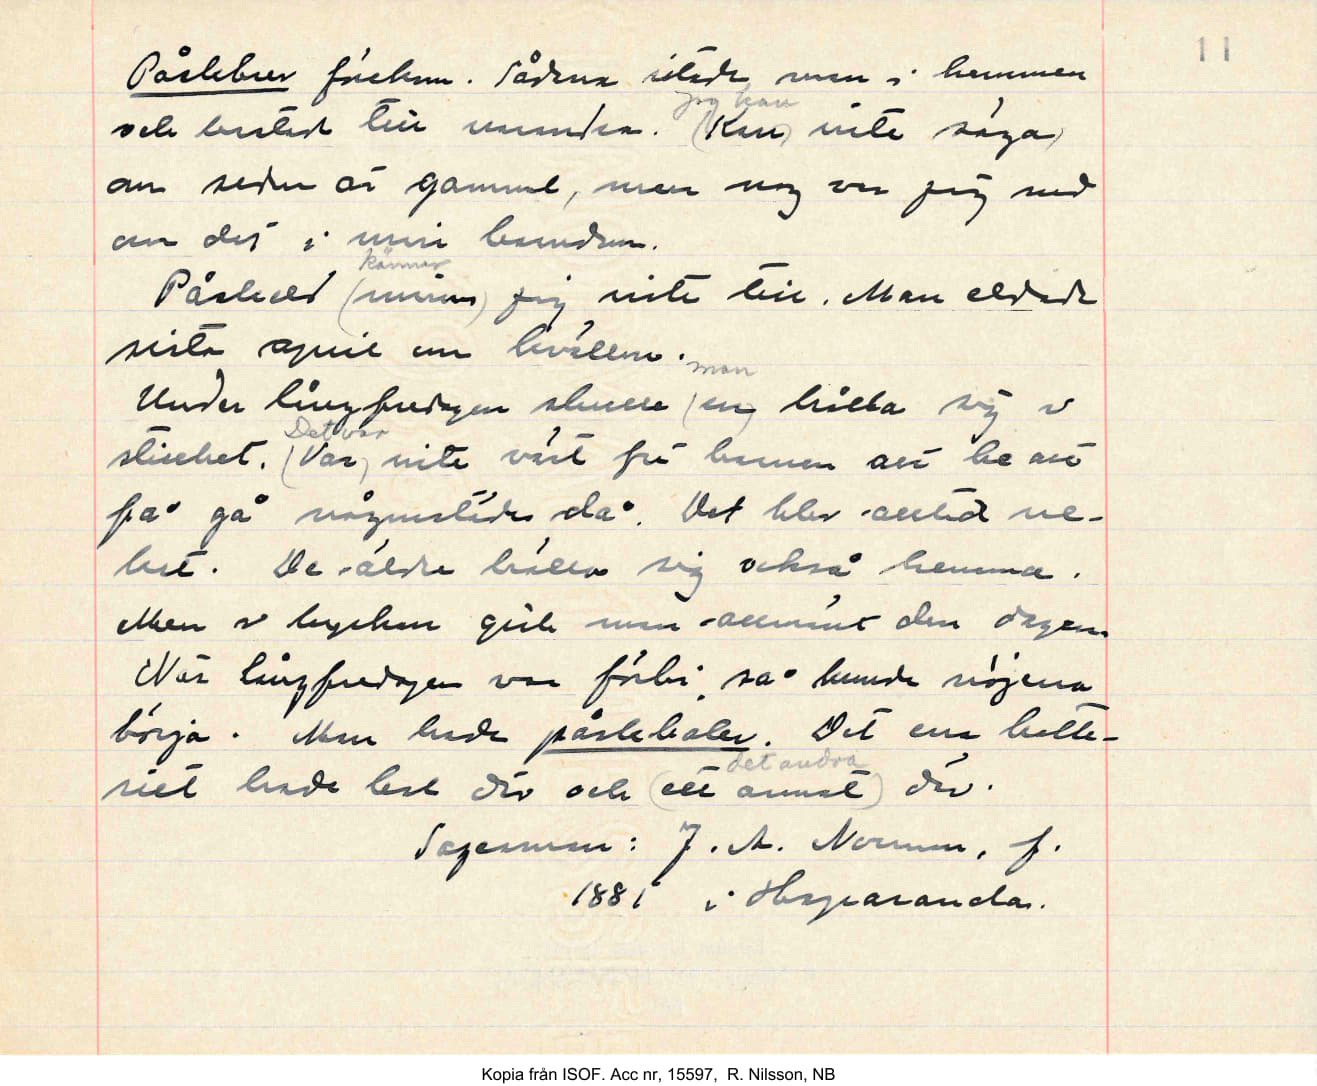 11
Påskbrev förekom. Sådana ritade man i hemmen
jag kan
och kastade till varandra. (Kan) inte säga
om seden är gammal, men nog var jag med
om det i min barndom.
känner
Påskeld (minns) jag inte till. Man eldade
sista april om kvällen.
man
Under långfredagen skulle (en) hålla sig i
Det var
stillhet. (Var) inte värt för barnen att be att
få gå någonstädes då. Det blev alltid ne-
kat. De äldre höllo sig också hemma.
Men i kyrkan gick man allmänt den dagen.
När långfredagen var förbi, så kunde nöjena
börja. Man hade påskbaler. Det ena kotte-
det andra
riet hade bal där och (ett annat) där.
Sagesman: J. A. Norman, f.
1881 i Haparanda.
Kopia från ISOF. Acc nr, 15597, R. Nilsson, NB